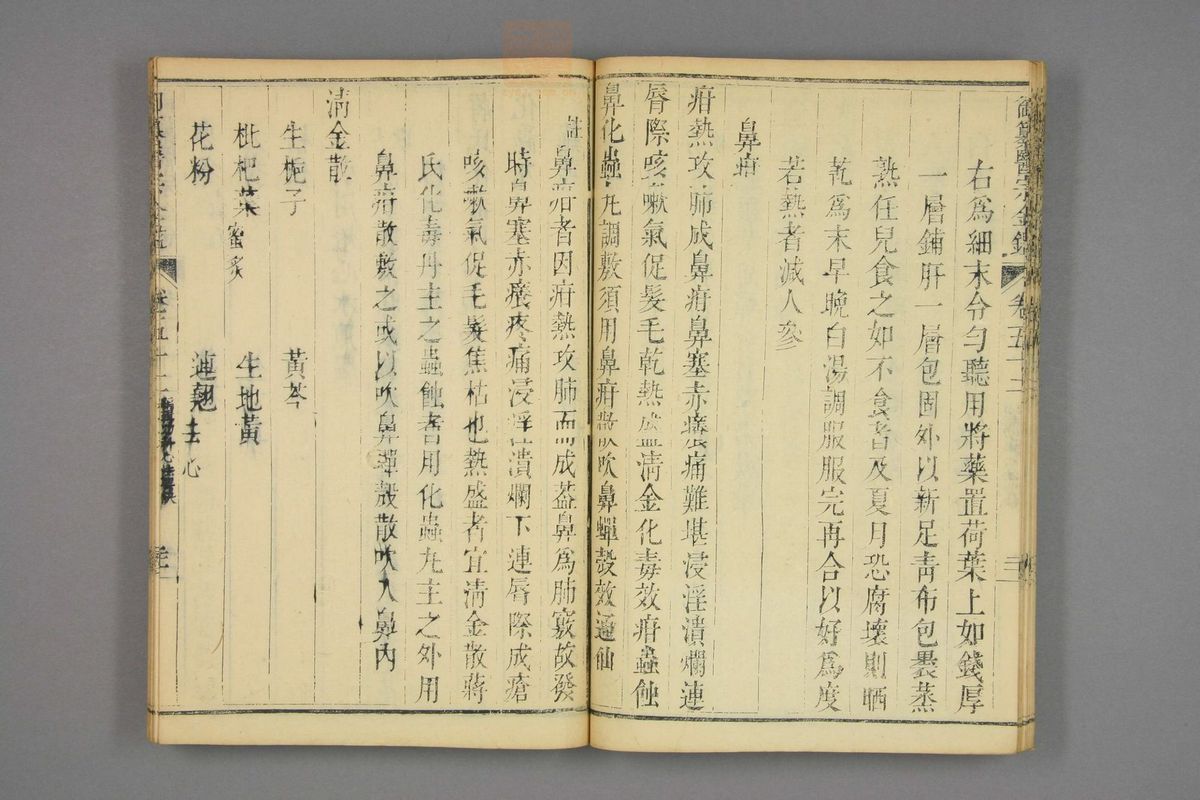 御纂醫宗金鑑 卷五十二
右為細末合勻聽用將藥置荷葉上如錢厚
一層鋪肝一層包固外以新足靑布包褁蒸
熟任兒食之如不食者及夏月恐腐壞則晒
乾為末早晚白湯調服服完再合以好為度
若熱者減人參
鼻疳
疳熱攻肺成鼻疳鼻塞赤癢痛難堪浸淫潰爛連
脣際咳嗽氣促髮毛乾熱盛淸金化毒效疳蟲蝕
鼻化蟲丸調敷須用鼻疳散吹鼻蟬殼效通仙
註 鼻疳者因疳熱攻肺而成葢鼻為肺竅故發
時鼻塞赤癢疼痛浸淫潰爛下連脣際成瘡
咳嗽氣促毛髮焦枯也熱盛者宜淸金散蔣
氏化毒丹主之蟲蝕者用化蟲丸主之外用
鼻疳散敷之或以吹鼻蟬殼散吹入鼻內
淸金散
生梔子 黃芩
枇杷葉蜜炙 生地黃
花粉 連翹去心